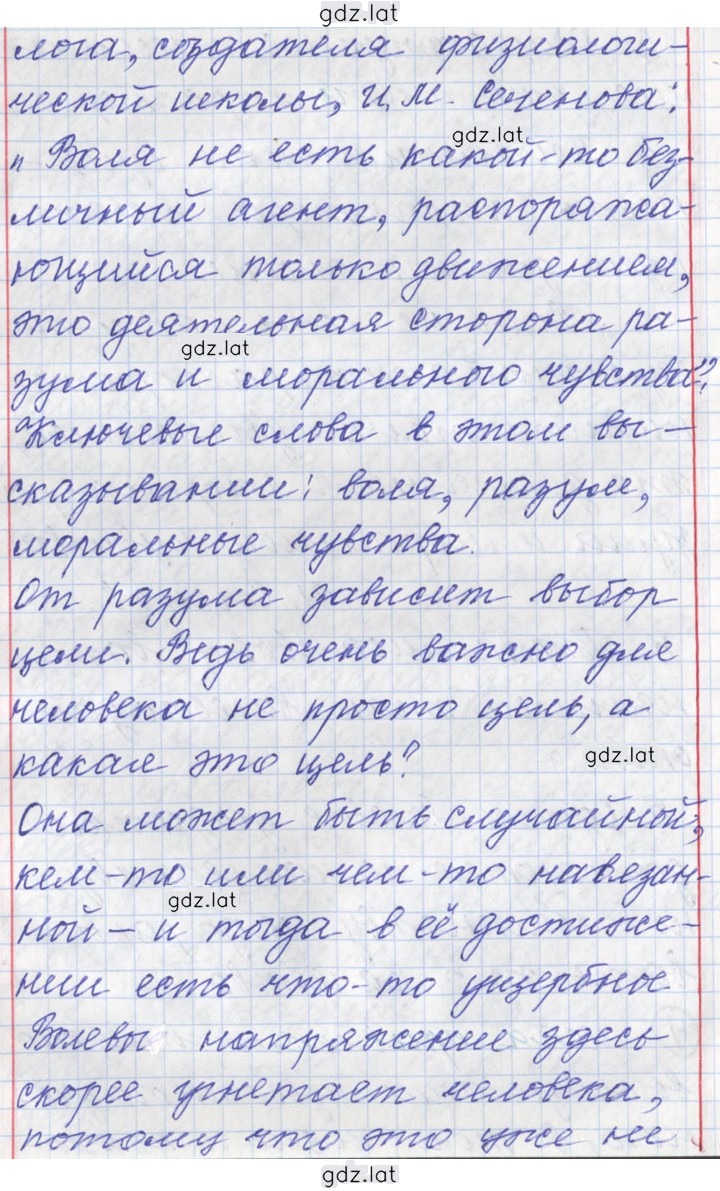 gdz.lat
лога, создателя физиологи-
ческой школы, И.М. Сеченова:
gdz.lat
"Воля не есть какой-то без-
личный агент, распоряжа-
ющийся только движением,
это деятельная сторона ра-
gdz.lat
зума и морального чувства".
Ключевые слова в этом вы-
сказывании: воля, разум,
моральные чувства.
От разума зависит выбор
цели. Ведь очень важно для
человека не просто цель, а
какая это цель?
gdz.lat
Она может быть случайной,
кем-то или чем-то навязан-
gdz.lat
ной - и тогда в её достиже-
нии есть что-то ущербное
Волевы напряжение здесь
скорее угнетает человека,
потому что это уже не
gdz.lat